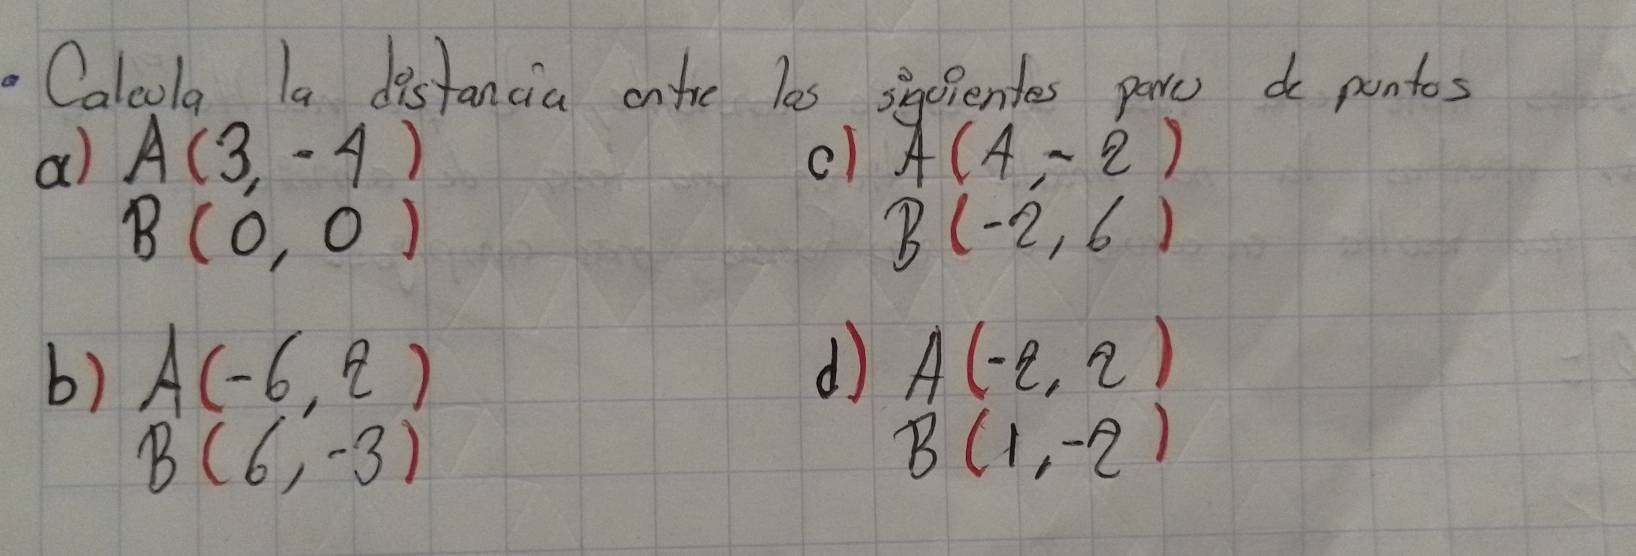 • Calcula la distancia entre los siguientes pares de puntos
a) A(3, -4)
B(0, 0)
c) A(4, -2)
B(-2, 6)
b) A(-6, 2)
B(6, -3)
d) A(-2, 2)
B(1, -2)